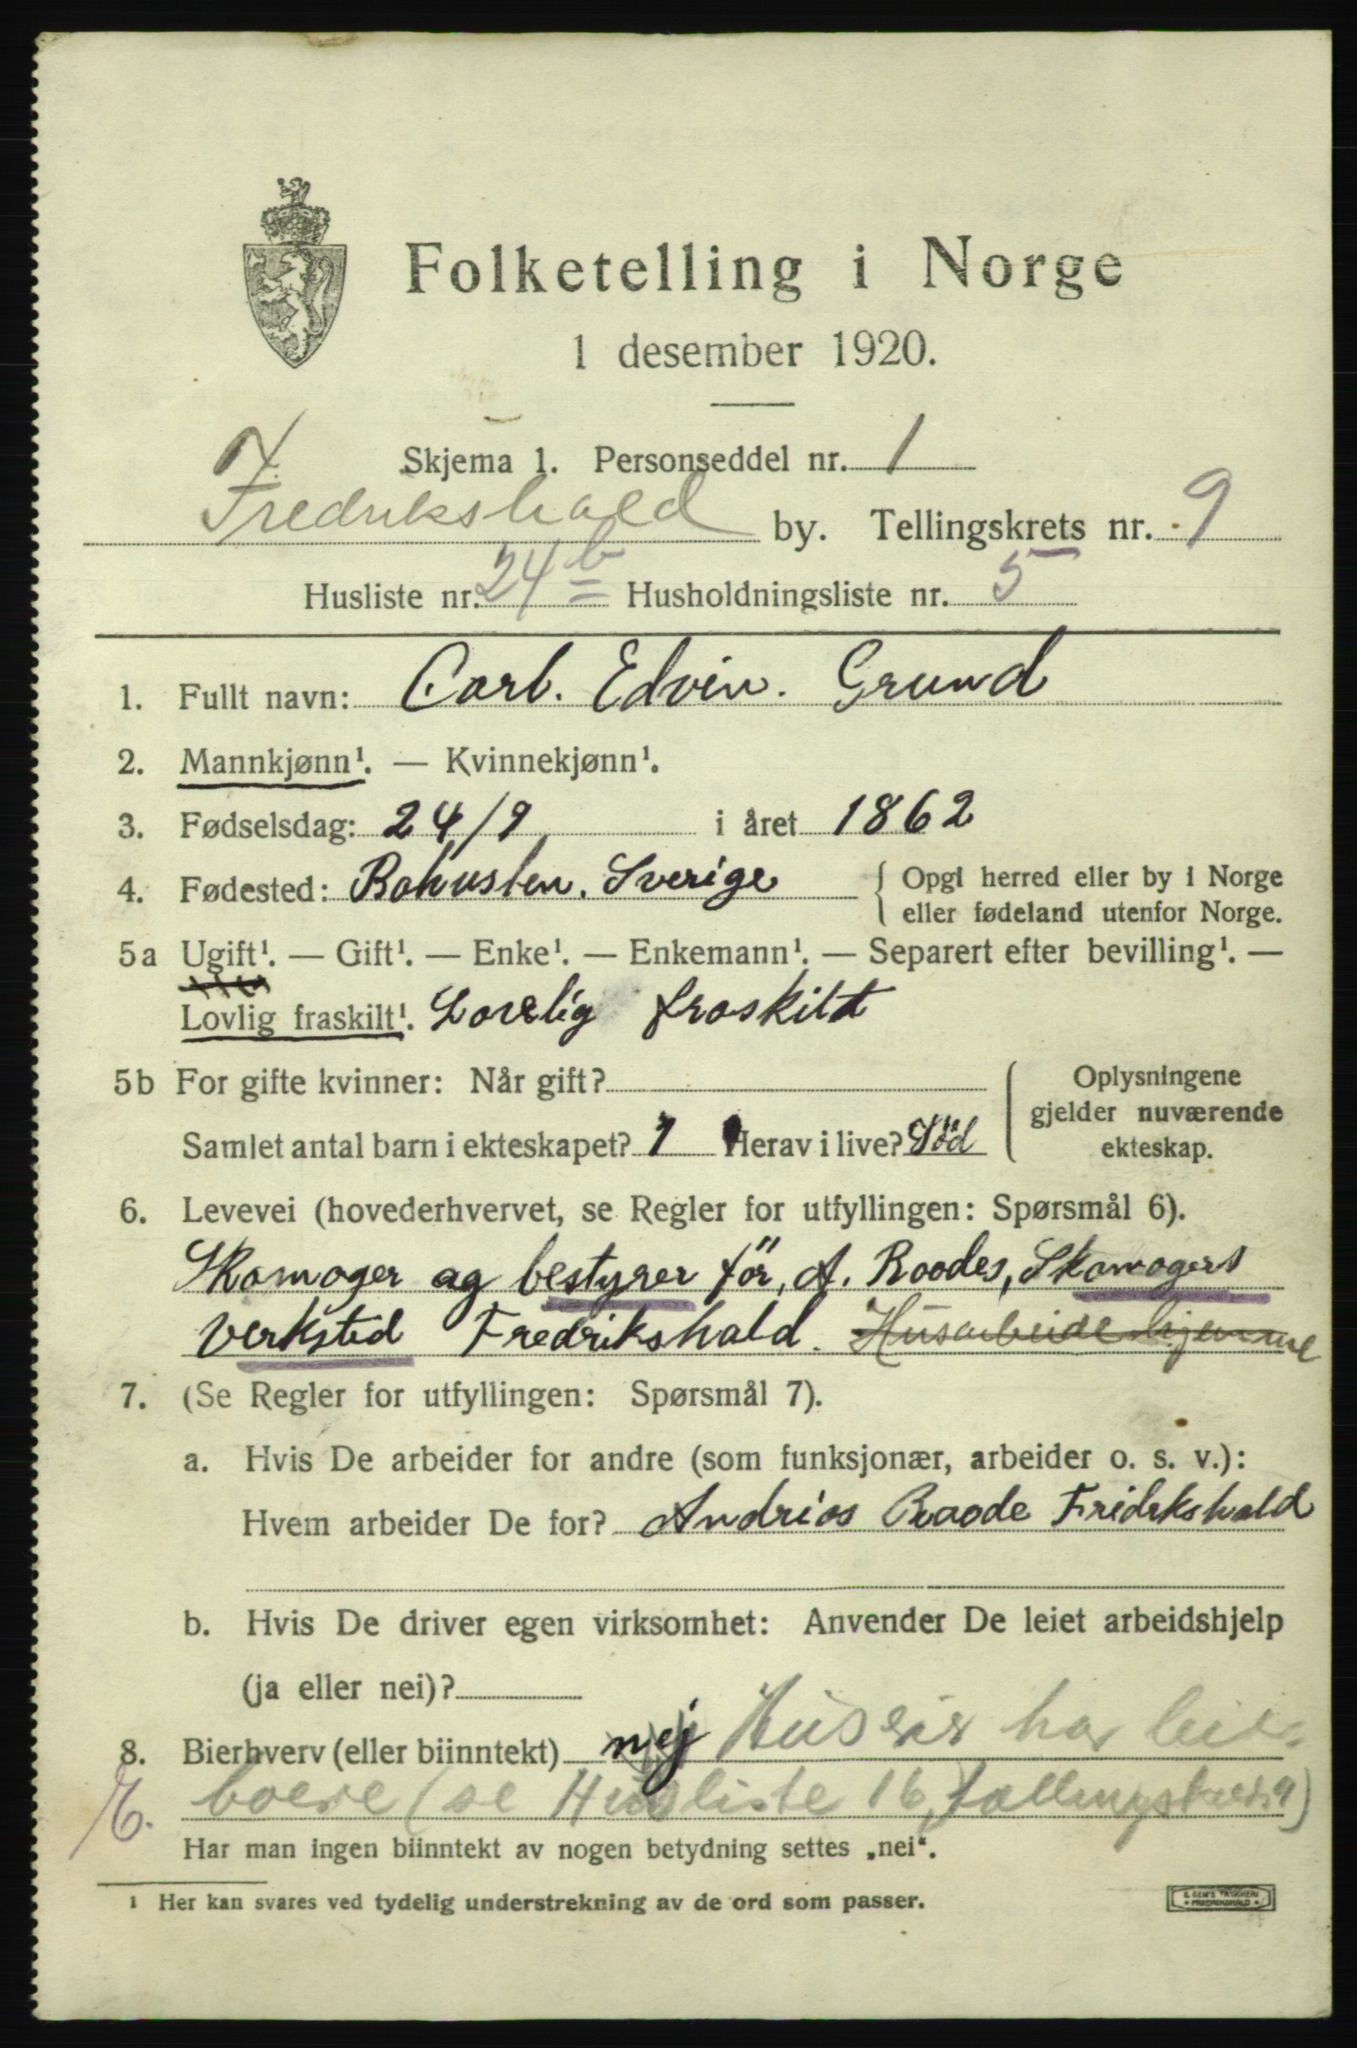 Folketelling i Norge
1 desember 1920.
Skjema 1. Personseddel nr. 1
Fredrikshald by. Tellingskrets nr. 9
Husliste nr. 24 b Husholdningsliste nr. 5
1. Fullt navn: Carl. Edvin. Grund
2. Mannkjønn¹. — Kvinnekjønn¹.
3. Fødselsdag: 24/9 i året 1862
4. Fødested: Bohuslen. Sverige { Opgi herred eller by i Norge
eller fødeland utenfor Norge.
5a Ugift¹. — Gift¹. — Enke¹. — Enkemann¹. — Separert efter bevilling¹. —
Lovlig fraskilt¹. Lovelig fraskilt
5b For gifte kvinner: Når gift? { Oplysningene
gjelder nuværende
ekteskap.
Samlet antal barn i ekteskapet? 1 Herav i live? Död
6. Levevei (hovederhvervet, se Regler for utfyllingen: Spørsmål 6).
Skomager og bestyrer för, A. Roodes, Skomagers
verksted Fredrikshald. Husarbeide hjemme
7. (Se Regler for utfyllingen: Spørsmål 7).
a. Hvis De arbeider for andre (som funksjonær, arbeider o. s. v.):
Hvem arbeider De for? Andrias Raode Fridrkshald
b. Hvis De driver egen virksomhet: Anvender De leiet arbeidshjelp
(ja eller nei)?
8. Bierhverv (eller biinntekt) nej Huseier har leie-
boere (se Husliste 16, Tællingskreds 9)
E.
Har man ingen biinntekt av nogen betydning settes „nei“.
¹ Her kan svares ved tydelig understrekning av de ord som passer.
E. SEM'S TRYKKERI
FREDRIKSHALD